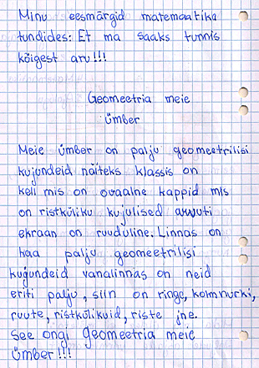 Minu eesmärgid matemaatika
tundides: Et ma saaks tunnis
kõigest aru!!!
Geomeetria meie
ümber
Meie ümber on palju geomeetrilisi
kujundeid näiteks klassis on
kell mis on ovaalne kappid mis
on ristküliku kujulised arvuti
ekraan on ruuduline. Linnas on
kaa palju geomeetrilisi
kujundeid vanalinnas on neid
eriti palju, siin on ringe, kolmnurki,
ruute, ristkülikuid, riste jne.
See ongi geomeetria meie
ümber!!!